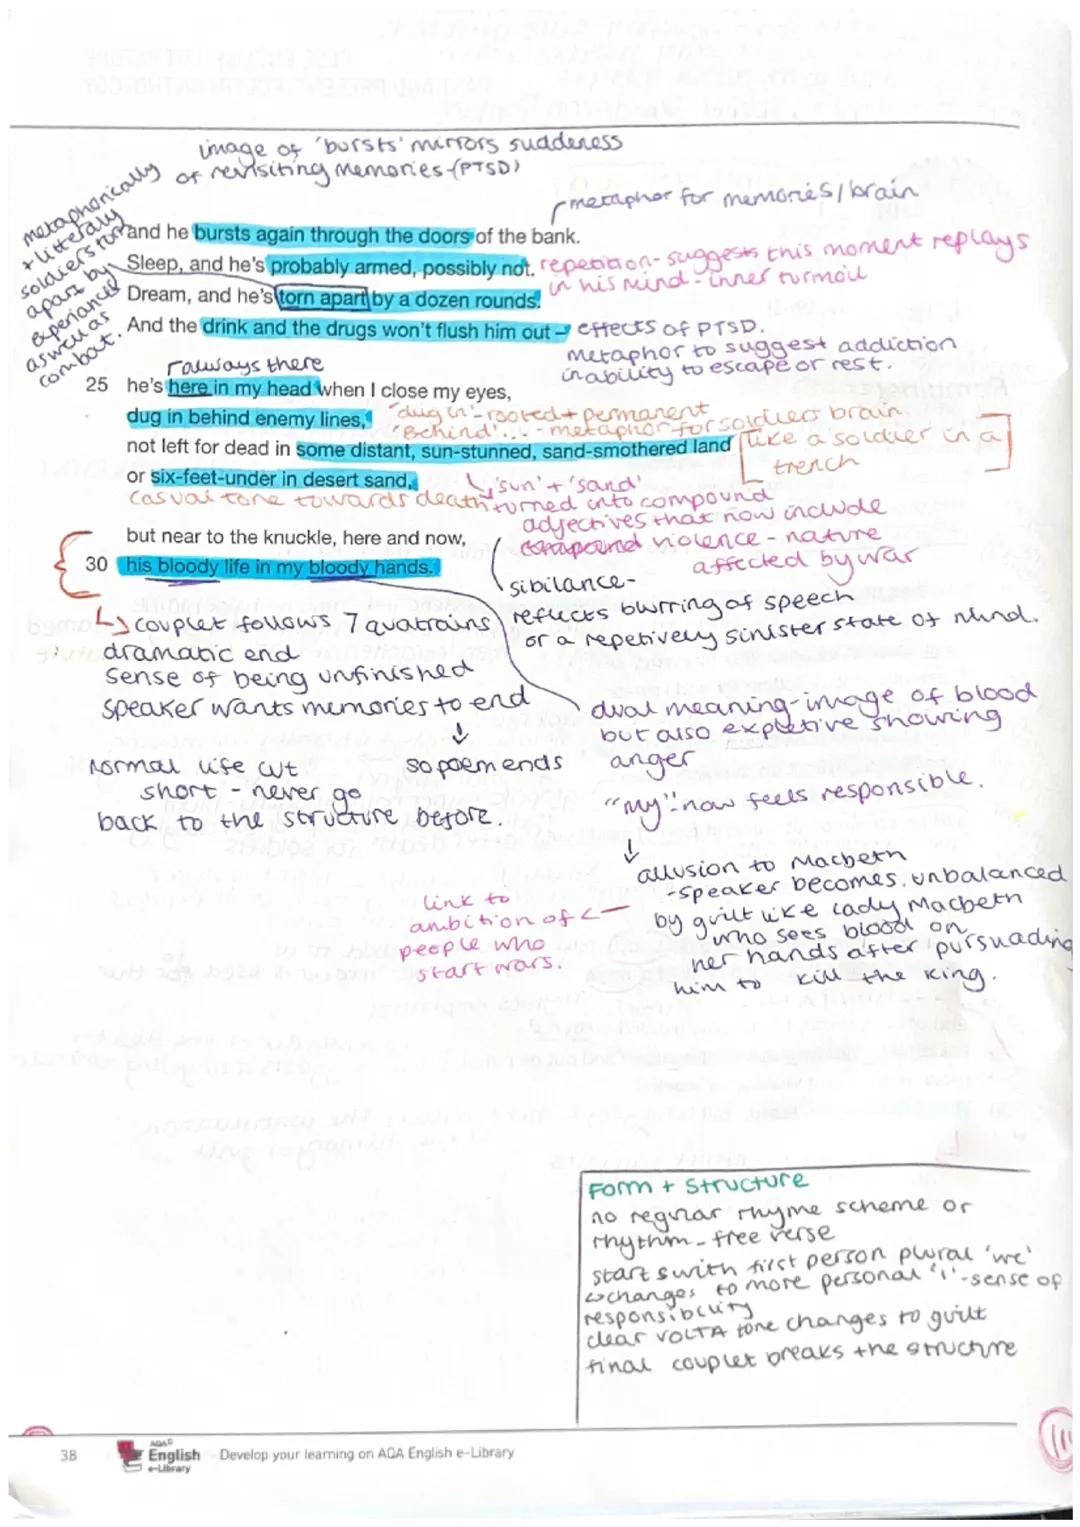 image of 'bursts' mirrors suddeness
of revisiting memories-(PTSD)
metaphorically
+ litteraly
solders turn
apart by
experiances
aswell as
combat.
metaphor for memories/brain
and he bursts again through the doors of the bank.
Sleep, and he's probably armed, possibly not.
repetition- suggests this moment replays
in his mind - inner turmoil
Dream, and he's torn apart by a dozen rounds.
And the drink and the drugs won't flush him out –
effects of PTSD.
metaphor to suggest addiction
inability to escape or rest.
always there
25 he's here in my head when I close my eyes,
dug in behind enemy lines,
'dug in'- rooted + permanent
'Behind'... - metaphor for soldiers brain
not left for dead in some distant, sun-stunned, sand-smothered land
[like a soldier in a
trench]
or six-feet-under in desert sand,
casual tone towards death
'sun' + 'sand'
turned into compound
adjectives that now include
violence - nature
affected by war
but near to the knuckle, here and now,
30 his bloody life in my bloody hands.
sibilance-
reflects blurring of speech
or a repetively sinister state of mind.
couplet follows 7 quatrains
dramatic end
sense of being unfinished
speaker wants memories to end
so poem ends
Normal life cut
short - never go
back to the structure before.
dual meaning-image of blood
but also expletive showing
anger
"my" now feels responsible.
allusion to Macbeth
-speaker becomes unbalanced
by guilt like lady Macbeth
who sees blood on
her hands after pursuading
him to kill the king.
link to
ambition of
people who
start wars.
Form + Structure
no regular rhyme scheme or
rhythm - free verse
starts with first person plural 'we'
changes to more personal 'I'-sense of
responsibility
clear VOLTA tone changes to guilt
final couplet breaks the structure
38 AQA English e-Library Develop your learning on AQA English e-Library